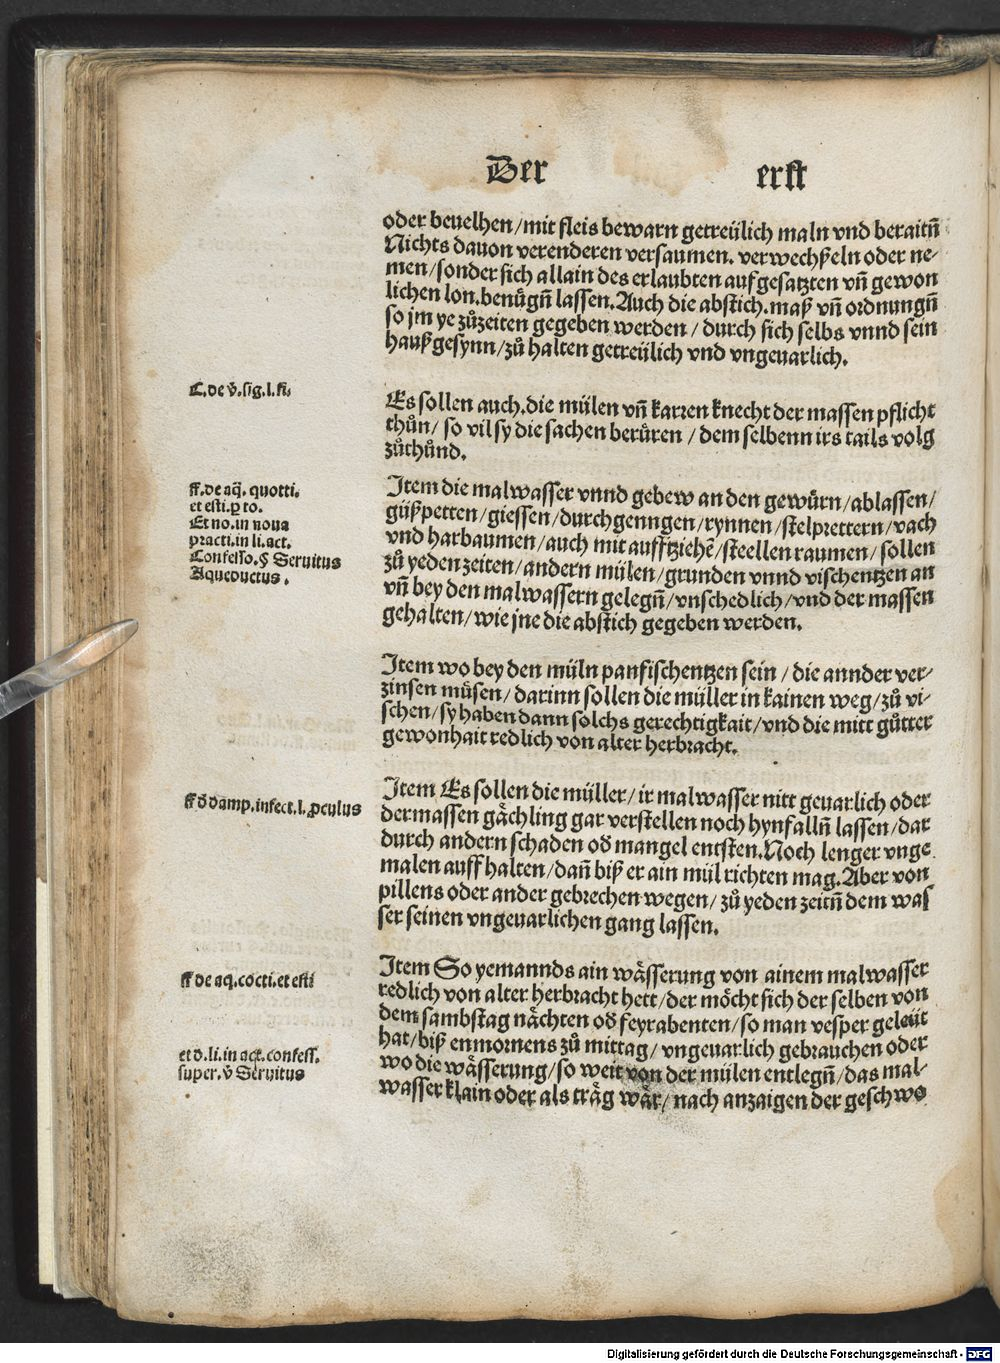 Der erst
oder beuelhen/mit fleis bewarn getreülich maln vnd beraitñ
Nichts dauon verenderen versaumen. verwechßeln oder ne-
men/sonder sich allain des erlaubten aufgesatzten vñ gewon
lichen lon.benügñ lassen.Auch die abstich.maß vñ ordnungñ
so jm ye zůzeiten gegeben werden/durch sich selbs vnnd sein
haußgesynn/zů halten getreülich vnd vngeuarlich.
C.de v̄.sig.l.fi.
Es sollen auch.die mülen vñ karren knecht der massen pflicht
thůn/so vil sy die sachen berüren/dem selbenn irs tails volg
zůthůnd.
ff.de aq̄. quotti.
et esti.ꝑ to.
Et no.in noua
practi.in li.act.
Confesso.§ Seruitus
Aqueductus.
Item die malwasser vnnd gebew an den gewürn/ablassen/
güßpetten/giessen/durchgenngen/rynnen/stelprettern/vach
vnd harbaumen/auch mit aufftziehē/steellen raumen/sollen
zů yeden zeiten/andern mülen/grunden vnnd vischentzen an
vñ bey den malwassern gelegñ/vnschedlich/vnd der massen
gehalten/wie jne die abstich gegeben werden.
Item wo bey den müln panfischentzen sein/die annder ver-
zinsen müsen/darinn sollen die müller in kainen weg/zů vi-
schen/sy haben dann solchs gerechtigkait/vnd die mitt gůtter
gewonhait redlich von alter herbracht.
ff đ damp.infect.l.ꝓculus
Item Es sollen die müller/ir malwasser nitt geuarlich oder
dermassen gächling gar verstellen noch hynfallñ lassen/dar
durch andern schaden ođ mangel entsten.Noch lenger vnge
malen auff halten/dañ biß er ain mül richten mag.Aber von
pillens oder ander gebrechen wegen/zů yeden zeitñ dem was
ser seinen vngeuarlichen gang lassen.
ff de aq.cocti.et esti
Item So yemannds ain wässerung von ainem malwasser
redlich von alter herbracht hett/der möcht sich der selben von
dem sambstag nächten ođ feyrabenten/so man vesper geleüt
hat/biß enmornens zů mittag/vngeuarlich gebrauchen oder
et đ.li.in act.confess.
super.v̄ Seruitus
wo die wässerung/so weit von der mülen entlegñ/das mal-
wasser klain oder als träg wär/nach anzaigen der geschwo
Digitalisierung gefördert durch die Deutsche Forschungsgemeinschaft - DFG